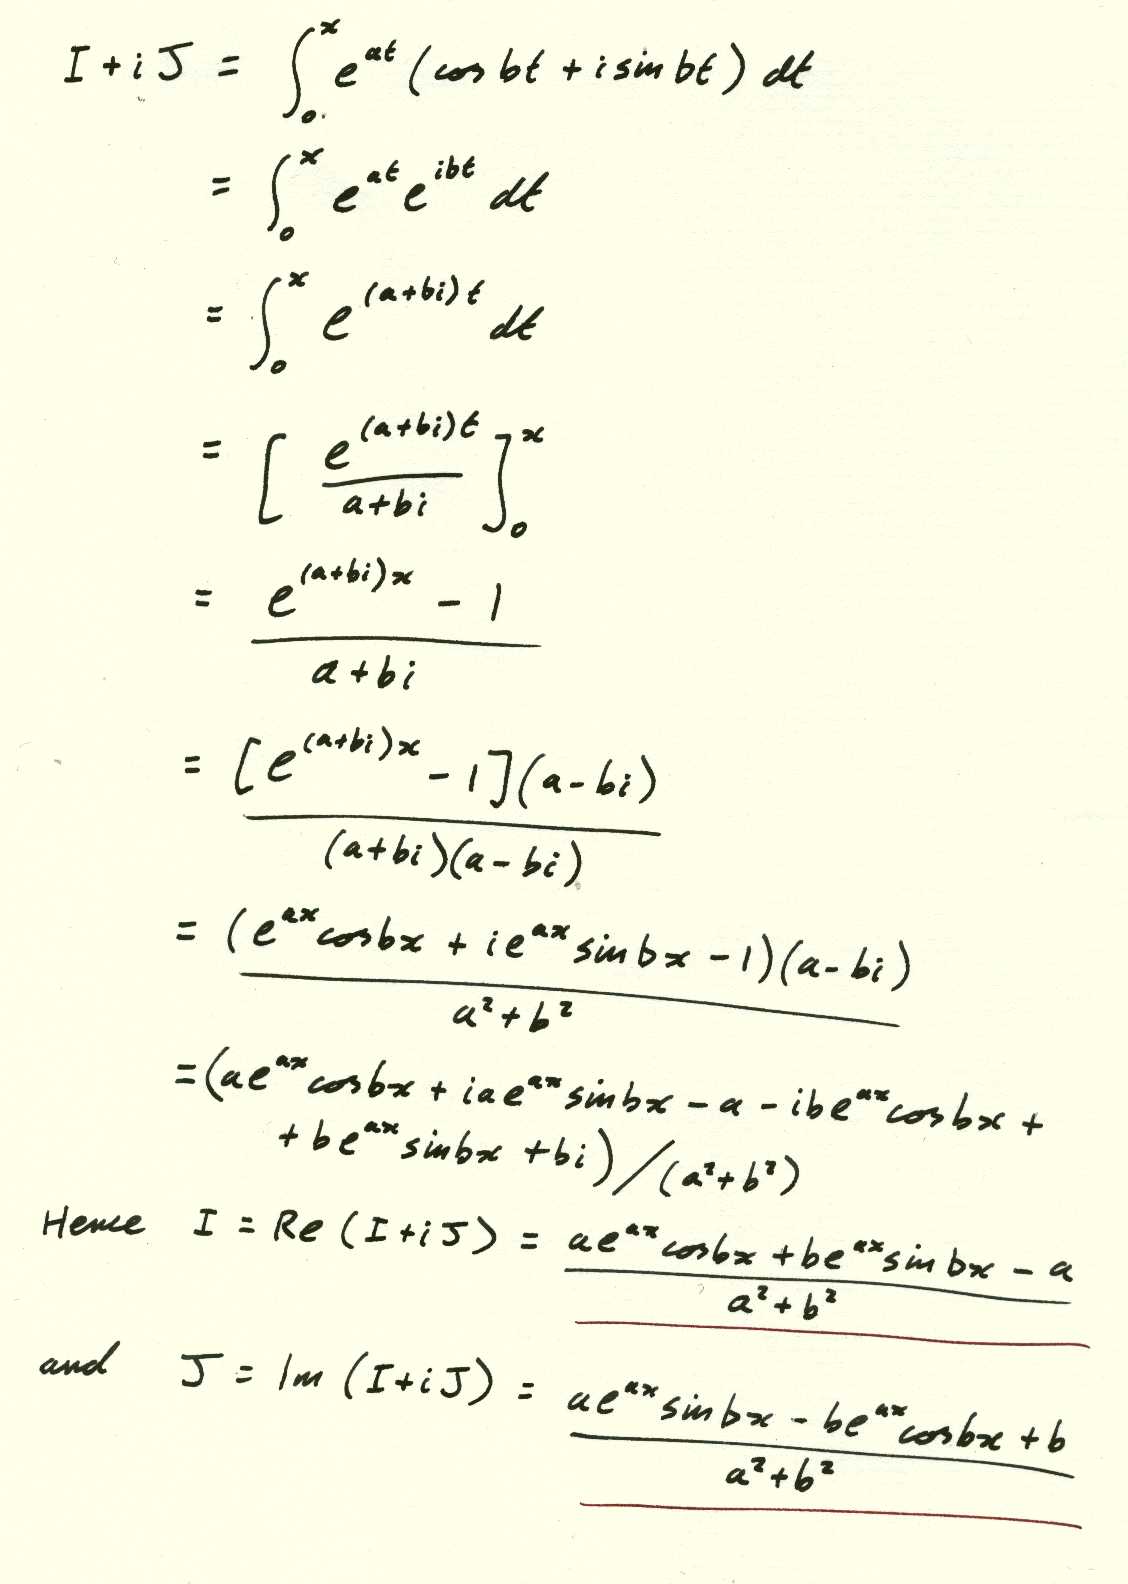 I + iJ = ∫₀ˣ e^{at} (cos bt + i sin bt) dt
= ∫₀ˣ e^{at} e^{ibt} dt
= ∫₀ˣ e^{(a+bi)t} dt
= [ e^{(a+bi)t} / (a+bi) ]₀ˣ
= (e^{(a+bi)x} - 1) / (a+bi)
= [e^{(a+bi)x} - 1](a-bi) / (a+bi)(a-bi)
= (e^{ax} cos bx + i e^{ax} sin bx - 1)(a-bi) / (a² + b²)
= (a e^{ax} cos bx + i a e^{ax} sin bx - a - i b e^{ax} cos bx +
+ b e^{ax} sin bx + bi) / (a² + b²)
Hence I = Re (I + iJ) = (a e^{ax} cos bx + b e^{ax} sin bx - a) / (a² + b²)
and J = Im (I + iJ) = (a e^{ax} sin bx - b e^{ax} cos bx + b) / (a² + b²)